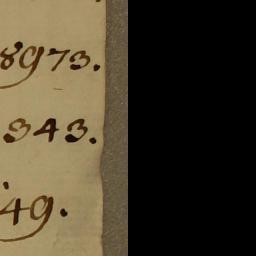 8973.
343.
49.